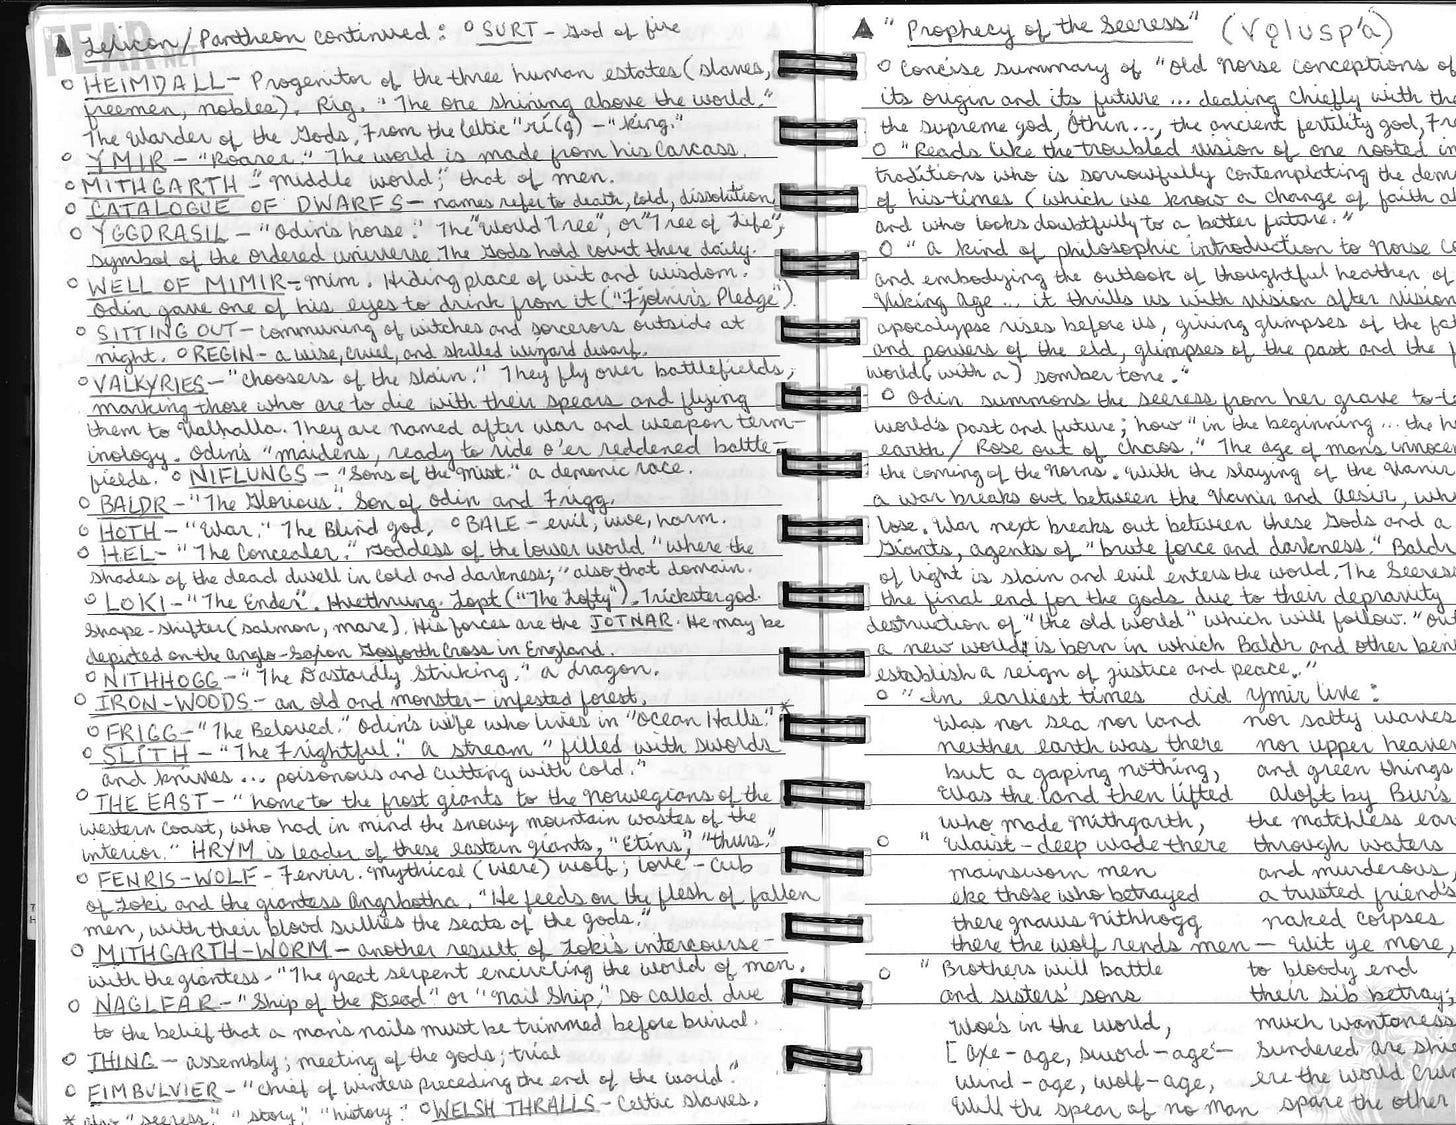 FEAR.NET
Lexicon/Pantheon continued: o SURT – God of fire
o HEIMDALL – Progenitor of the three human estates (slaves,
freemen, nobles). Rig. "The one shining above the world."
The Warder of the Gods. From the Celtic "rí(g) – "king."
o YMIR – "Roarer." The world is made from his carcass.
o MITHGARTH – "middle world;" that of men.
o CATALOGUE OF DWARFS – names refer to death, cold, dissolution
o YGGDRASIL – "Odin's horse." The "World Tree", or "Tree of Life",
symbol of the ordered universe. The Gods hold court there daily.
o WELL OF MIMIR – mim. Hiding place of wit and wisdom.
Odin gave one of his eyes to drink from it ("Fjolnir's Pledge").
o SITTING OUT – communing of witches and sorcerors outside at
night. o REGIN – a wise, cruel, and skilled wizard dwarf.
o VALKYRIES – "choosers of the slain." They fly over battlefields,
marking those who are to die with their spears and flying
them to Valhalla. They are named after war and weapon term-
inology. Odin's "maidens, ready to ride o'er reddened battle-
fields. o NIFLUNGS – "Sons of the Mist." a demonic race.
o BALDR – "The Glorious". Son of Odin and Frigg.
o HOTH – "War." The Blind god. o BALE – evil, woe, harm.
o HEL – "The Concealer." Goddess of the lower world "where the
shades of the dead dwell in cold and darkness;" also that domain.
o LOKI – "The Ender". Hvethrung. Lopt ("The Lofty"). Trickster god.
Shape-shifter (salmon, mare). His forces are the JOTNAR. He may be
depicted on the Anglo-Saxon Gosforth Cross in England.
o NITHHOGG – "The Dastardly Striking." a dragon.
o IRON-WOODS – an old and monster-infested forest.
o FRIGG – "The Beloved." Odin's wife who lives in "Ocean Halls." *
o SLITH – "The Frightful". A stream "filled with swords
and knives ... poisonous and cutting with cold."
o THE EAST – "home to the frost giants to the Norwegians of the
western coast, who had in mind the snowy mountain wastes of the
interior." HRYM is leader of these eastern giants, "Etins," "thurs."
o FENRIS-WOLF – Fenrir. Mythical (were) wolf; love-cub
of Loki and the giantess Angrbotha. "He feeds on the flesh of fallen
men, with their blood sullies the seats of the gods."
o MITHGARTH-WORM – another result of Loki's intercourse
with the giantess – "The great serpent encircling the world of men.
o NAGLFAR – "Ship of the Dead" or "Nail Ship," so called due
to the belief that a man's nails must be trimmed before burial.
o THING – assembly; meeting of the gods; trial
o FIMBULVIER – "chief of winters preceding the end of the world."
* also "seeress," "story," "history." o WELSH THRALLS – Celtic slaves.
"Prophecy of the Seeress" (Vǫluspá)
o Concise summary of "Old Norse conceptions of
its origin and its future ... dealing chiefly with the
the supreme god, Óthin..., the ancient fertility god, Fre
o "Reads like the troubled vision of one rooted in
traditions who is sorrowfully contemplating the dem
of his times (which we know a change of faith a
and who looks doubtfully to a better future."
o "a kind of philosophic introduction to Norse Co
and embodying the outlook of thoughtful heathen of
Viking Age ... it thrills us with vision after vision
apocalypse rises before us, giving glimpses of the fa
and powers of the eld, glimpses of the past and the
world (with a) somber tone."
o Odin summons the seeress from her grave to
world's past and future; how "in the beginning ... the h
earth / Rose out of chaos." The age of man's innoce
the coming of the Norns. With the slaying of the Vanir
a war breaks out between the Vanir and Aesir, wh
lose. War next breaks out between these Gods and a
Giants, agents of "brute force and darkness." Baldr
of light is slain and evil enters the world. The Seeress
the final end for the gods due to their depravity
destruction of "the old world" which will follow. "out
a new world is born in which Baldr and other ben
establish a reign of justice and peace."
o "In earliest times did Ymir live:
Was nor sea nor land nor salty waves
neither earth was there nor upper heaven
but a gaping nothing, and green things
Was the land then lifted aloft by Bur's
who made Mithgarth, the matchless ear
o "Waist-deep wade there through waters
mainsworn men and murderous,
eke those who betrayed a trusted friend's
there gnaws Nithhogg naked corpses
there the wolf rends men – wit ye more,
o "Brothers will battle to bloody end
and sisters' sons their sib betray;
Woe's in the world, much wantoness
[axe-age, sword-age – sundered are shie
wind-age, wolf-age, ere the world crum
Will the spear of no man spare the other